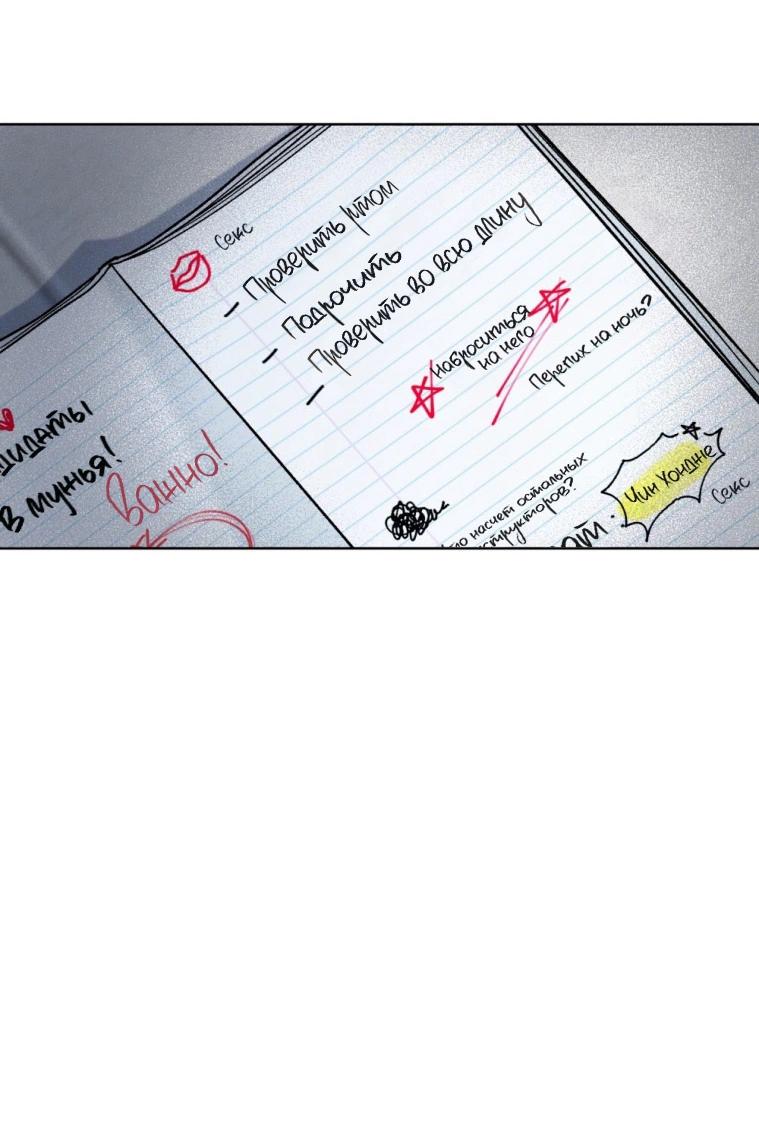 дидаты
в мужья!
Важно!
Секс
- Проверить ртом
- Подрочить
- Проверить во всю длину
Наброситься
на него
Перепих на ночь?
то насчет остальных
структоров?
ют.
Чин Хондже
Секс